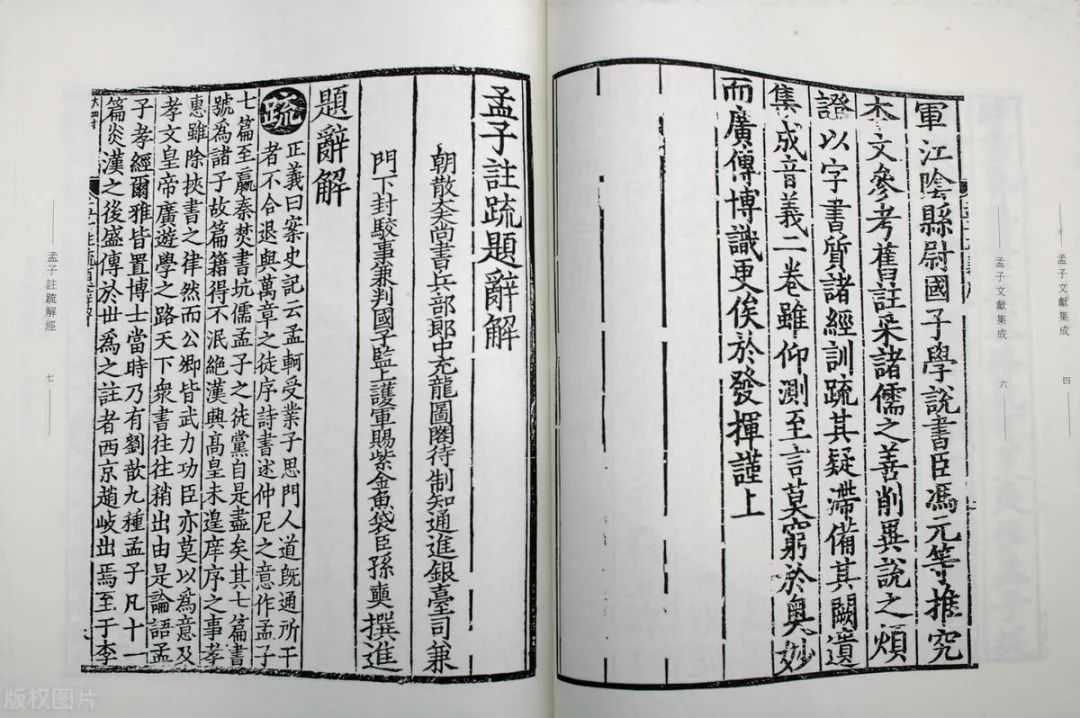 孟子文獻集成
四
孟子文獻集成
六
軍江陰縣尉國子學說書臣馮元等推究
本文參考舊註采諸儒之善削異說之煩
證以字書質諸經訓疏其疑滯備其闕遺
集成音義二卷雖仰測至言莫窮於奧妙
而廣傳博識更俟於發揮謹上
孟子註疏題辭解
朝散大夫尚書兵部郎中充龍圖閣待制知通進銀臺司兼
門下封駮事兼判國子監上護軍賜紫金魚袋臣孫奭撰進
題辭解
疏
正義曰案史記云孟軻受業子思門人道旣通所干
者不合退與萬章之徒序詩書述仲尼之意作孟子
七篇至嬴秦焚書坑儒孟子之徒黨自是盡矣其七篇書
號為諸子故篇籍得不泯絕漢興高皇未遑庠序之事孝
惠雖除挾書之律然而公卿皆武力功臣亦莫以為意及
孝文皇帝廣遊學之路天下衆書往往稍出由是論語孟
子孝經爾雅皆置博士當時乃有劉歆九種孟子凡十一
篇炎漢之後盛傳於世為之註者西京趙岐出焉至于李
孟子註疏解經
七
版权图片